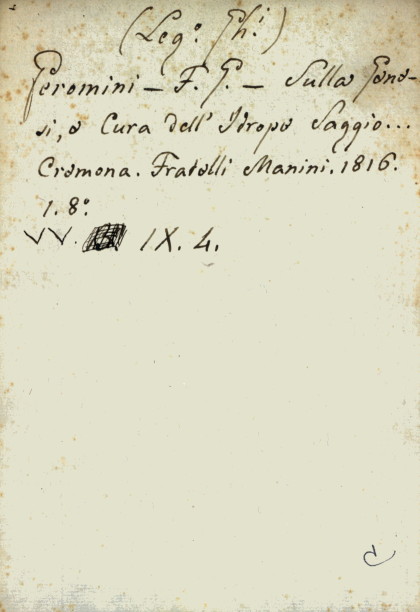 (Leg.º Gh.i)
Geromini – F. G. – Sulla Gene-
si, e Cura dell' Idrope Saggio...
Cremona. Fratelli Manini. 1816.
1. 8.º
VV. IX. 4.